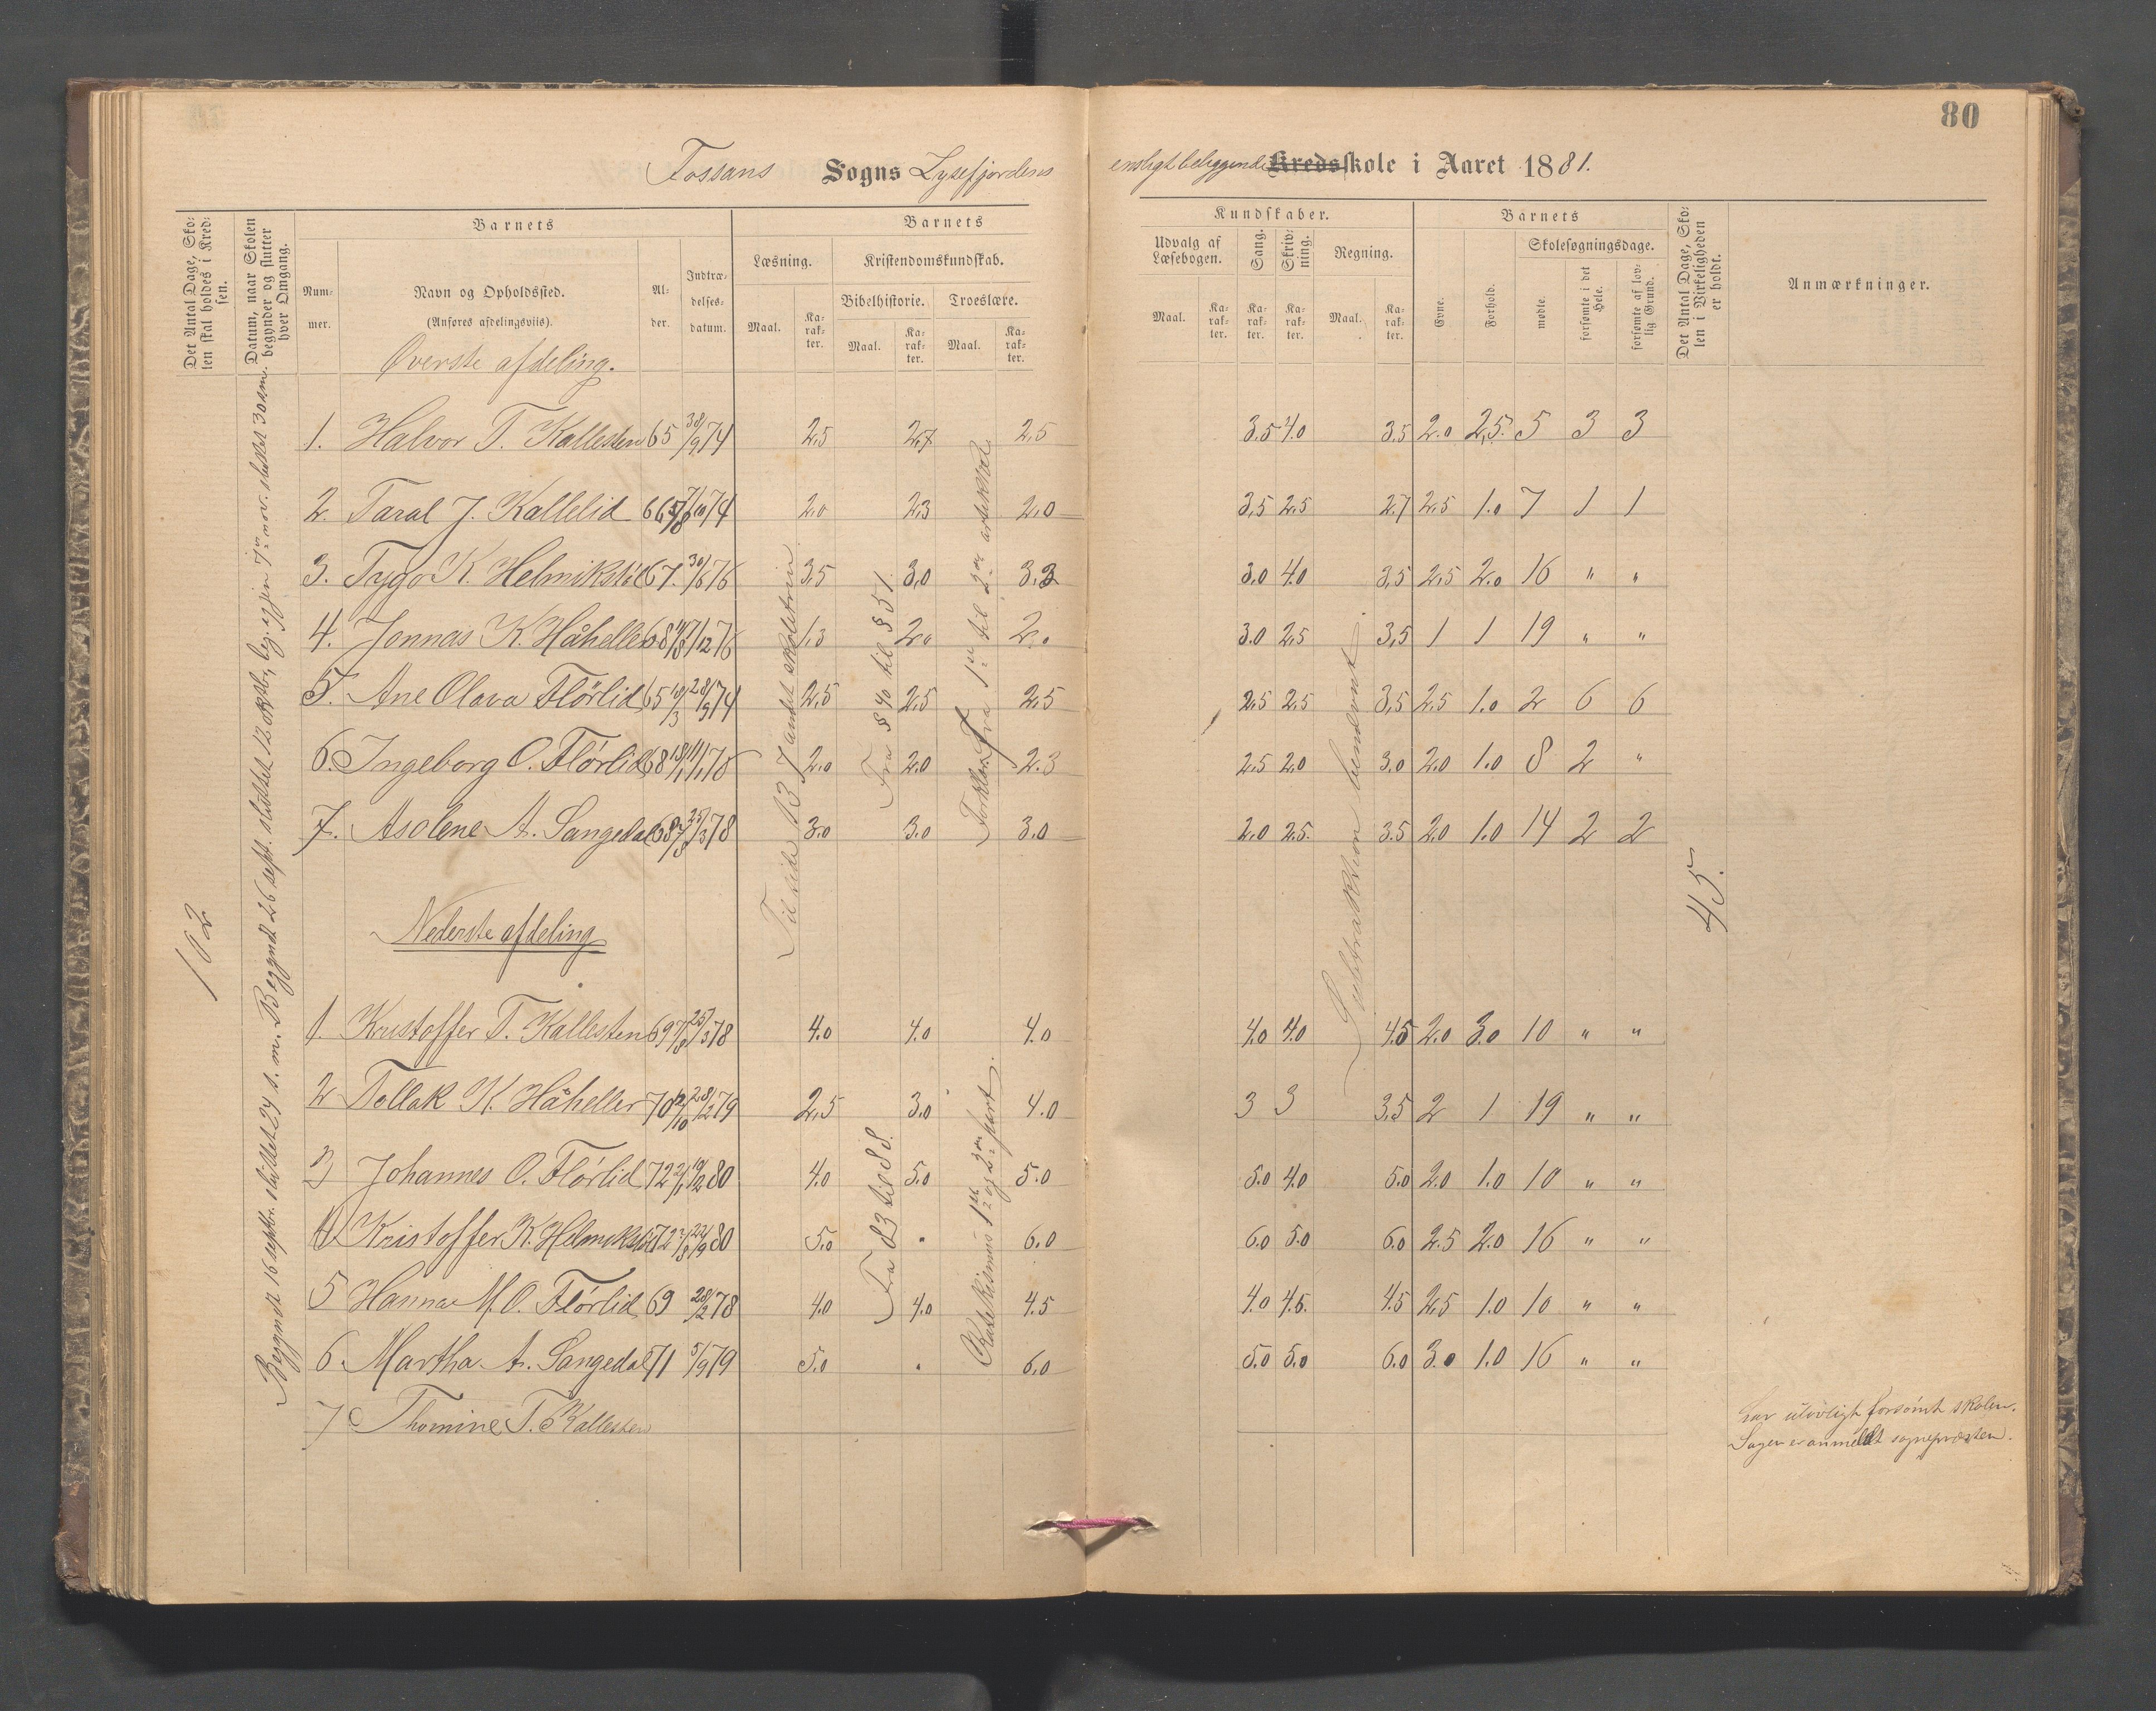 80
Fossans Sogns Lysefjordens ensligt beliggende Kredsskole i Aaret 1881.
Det Antal Dage, Skolen skal holdes i Kredsen.
Datum, naar Skolen begynder og slutter hver Omgang.
Barnets
Nummer.
Navn og Opholdssted.
(Anføres afdelingsviis).
Alder.
Indtrædelsesdatum.
Barnets
Læsning.
Maal.
Karakter.
Kristendomskundskab.
Bibelhistorie.
Maal.
Karakter.
Troeslære.
Maal.
Karakter.
Kundskaber.
Udvalg af Læsebogen.
Maal.
Karakter.
Sang.
Karakter.
Skrivning.
Karakter.
Regning.
Maal.
Karakter.
Barnets
Evne.
Forhold.
Skolesøgningsdage.
mødte.
forsømte i det Hele.
forsømte af lovlig Grund.
Det Antal Dage, Skolen i Virkeligheden er holdt.
Anmærkninger.
102
Begyndt 16 septbr. sluttet 24 s. m. Begyndt 26 sept. sluttet 12 oktbr, beg. igjen 7de nov. sluttet 30 sm.
Øverste afdeling.
1. Halvor T. Kallesten 65 30/9 74 2,5 2,7 2,5 3.5 4.0 3.5 2.0 2,5. 5 3 3
2. Taral J. Kallelid 66 7/10 74 2,0 2,3 2,0 3,5 2,5 2.7 2,5 1.0 7 1 1
3. Tygo K. Helmikstöl 67. 30/6 76 3,5 3,0 3,3 3,0 4.0 3,5 2,5 2.0 16 " "
4. Jonnas K. Håheller 68 7/12 76 1,3 2,0 2.0 3.0 2,5 3,5 1 1 19 " "
5. Ane Olava Flörlid 65 28/9 74 2,5 2,5 2,5 2,5 2,5 3,5 2,5 1.0 2 6 6
6. Ingeborg O. Flörlid 68 2.0 2.0 2.3 2,5 2,0 3.0 2.0 1.0 8 2 "
7. Asolene A. Sangedal 68 25/3 78 3.0 3.0 3.0 2.0 2.5. 3.5 2.0 1.0 14 2 2
Til side 137 andet skoletrin
Fra § 40 til § 51.
Forklar. Fra 1ste til 2den artikkel
Subtraktion benævnt
45.
Nederste afdeling
1. Kristoffer T. Kallesten 69 25/3 78 4.0 4.0 4.0 4.0 4.0 4.5 2.0 3.0 10 " "
2 Tollak K. Håheller 70 28/2 79 2,5 3.0 4.0 3 3 3,5 2 1 19 " "
3 Johannes O. Flörlid 72 19/2 80 4.0 5.0 5.0 5.0 4.0 5.0 2.0 1.0 10 " "
4 Kristoffer K. Helmikstöl 72 22/9 80 5.0 " 6.0 6.0 5.0 6.0 2.5 2.0 16 " "
5 Hanna M. O. Flörlid 69 28/2 78 4.0 4.0 4.5 4.0 4.5. 4.5 2,5 1.0 10 " "
6. Martha A. Sangedal 71 5/9 79 5.0 " 6.0 5.0 5.0 6.0 3.0 1.0 16 " "
7 Thomine T. Kallesten
Fra 83 til 88.
Katekismus 1ste og 2den part.
har ulovligt forsömt skolen.
Sagen er anmeldt sognepræsten.